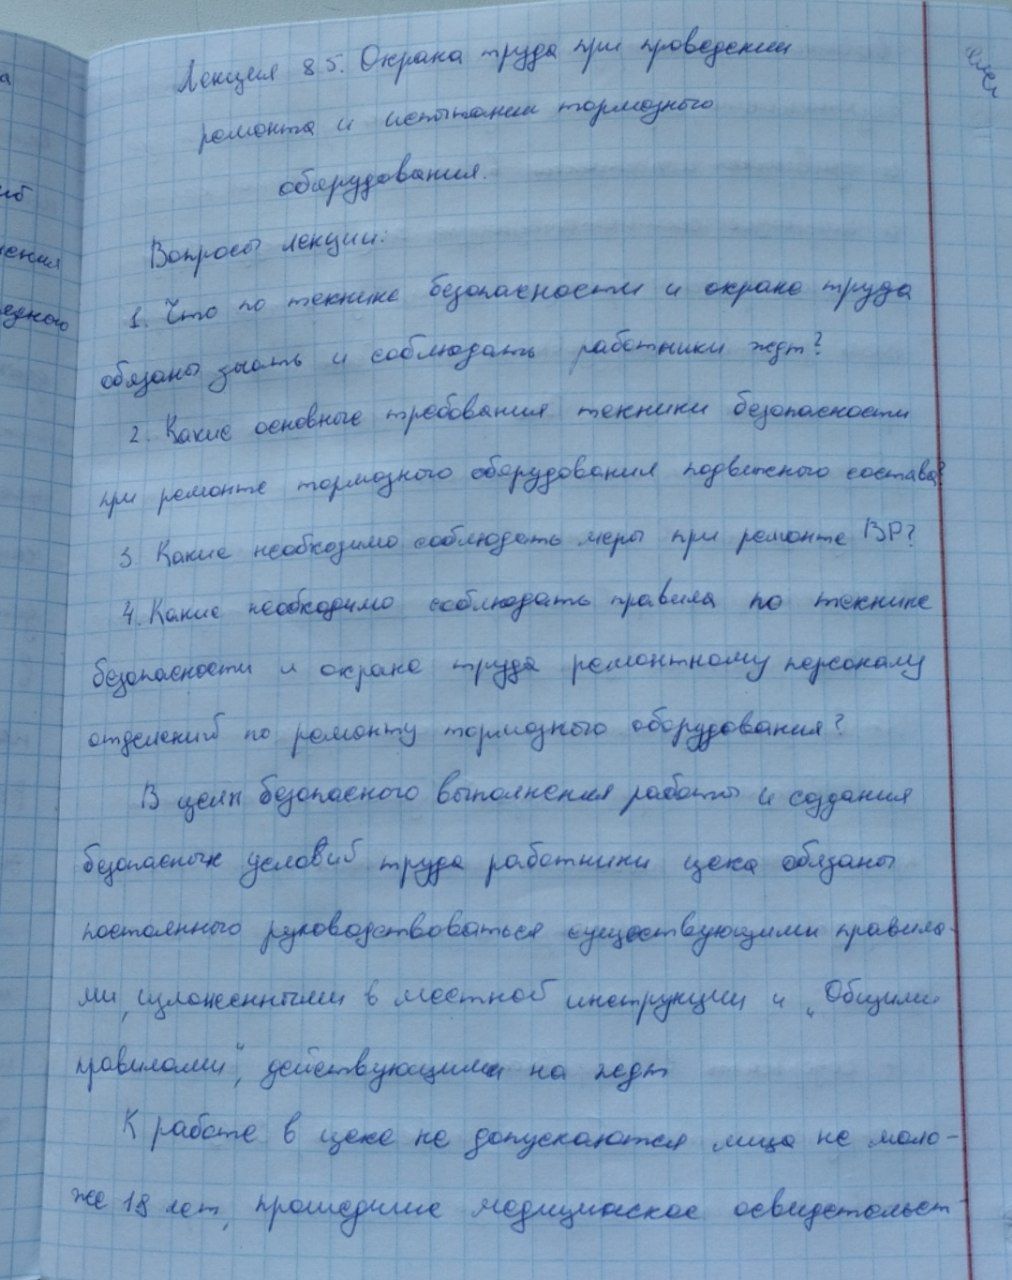 Лекция 85. Охрана труда при проведении
ремонта и испытании тормозного
оборудования.
Вопросы лекции:
1. Что по технике безопасности и охране труда
обязаны знать и соблюдать работники ждт?
2. Какие основные требования техники безопасности
при ремонте тормозного оборудования подвижного состава?
3. Какие необходимо соблюдать меры при ремонте ВР?
4. Какие необходимо соблюдать правила по технике
безопасности и охране труда ремонтному персоналу
отделений по ремонту тормозного оборудования?
В целях безопасного выполнения работы и создания
безопасных условий труда работники цеха обязаны
постоянного руководствоваться существующими правила-
ми, изложенными в местной инструкции и „Общими
правилами", действующими на ждт
К работе в цехе не допускаются лица не моло-
же 18 лет, прошедшие медицинское освидетельст